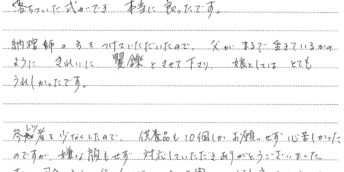 落ちついた式ができ 本当に良かったです。
納棺師の方をつけていただいたので、父がまるで生きているかの
ように きれいに させて下さり 娘としては とても
うれしかったです。
参列者を少なくしたので、供養品も10個しかお願いせず心苦しかった
のですが、嫌な顔もせず 対応していただきありがとうございました。